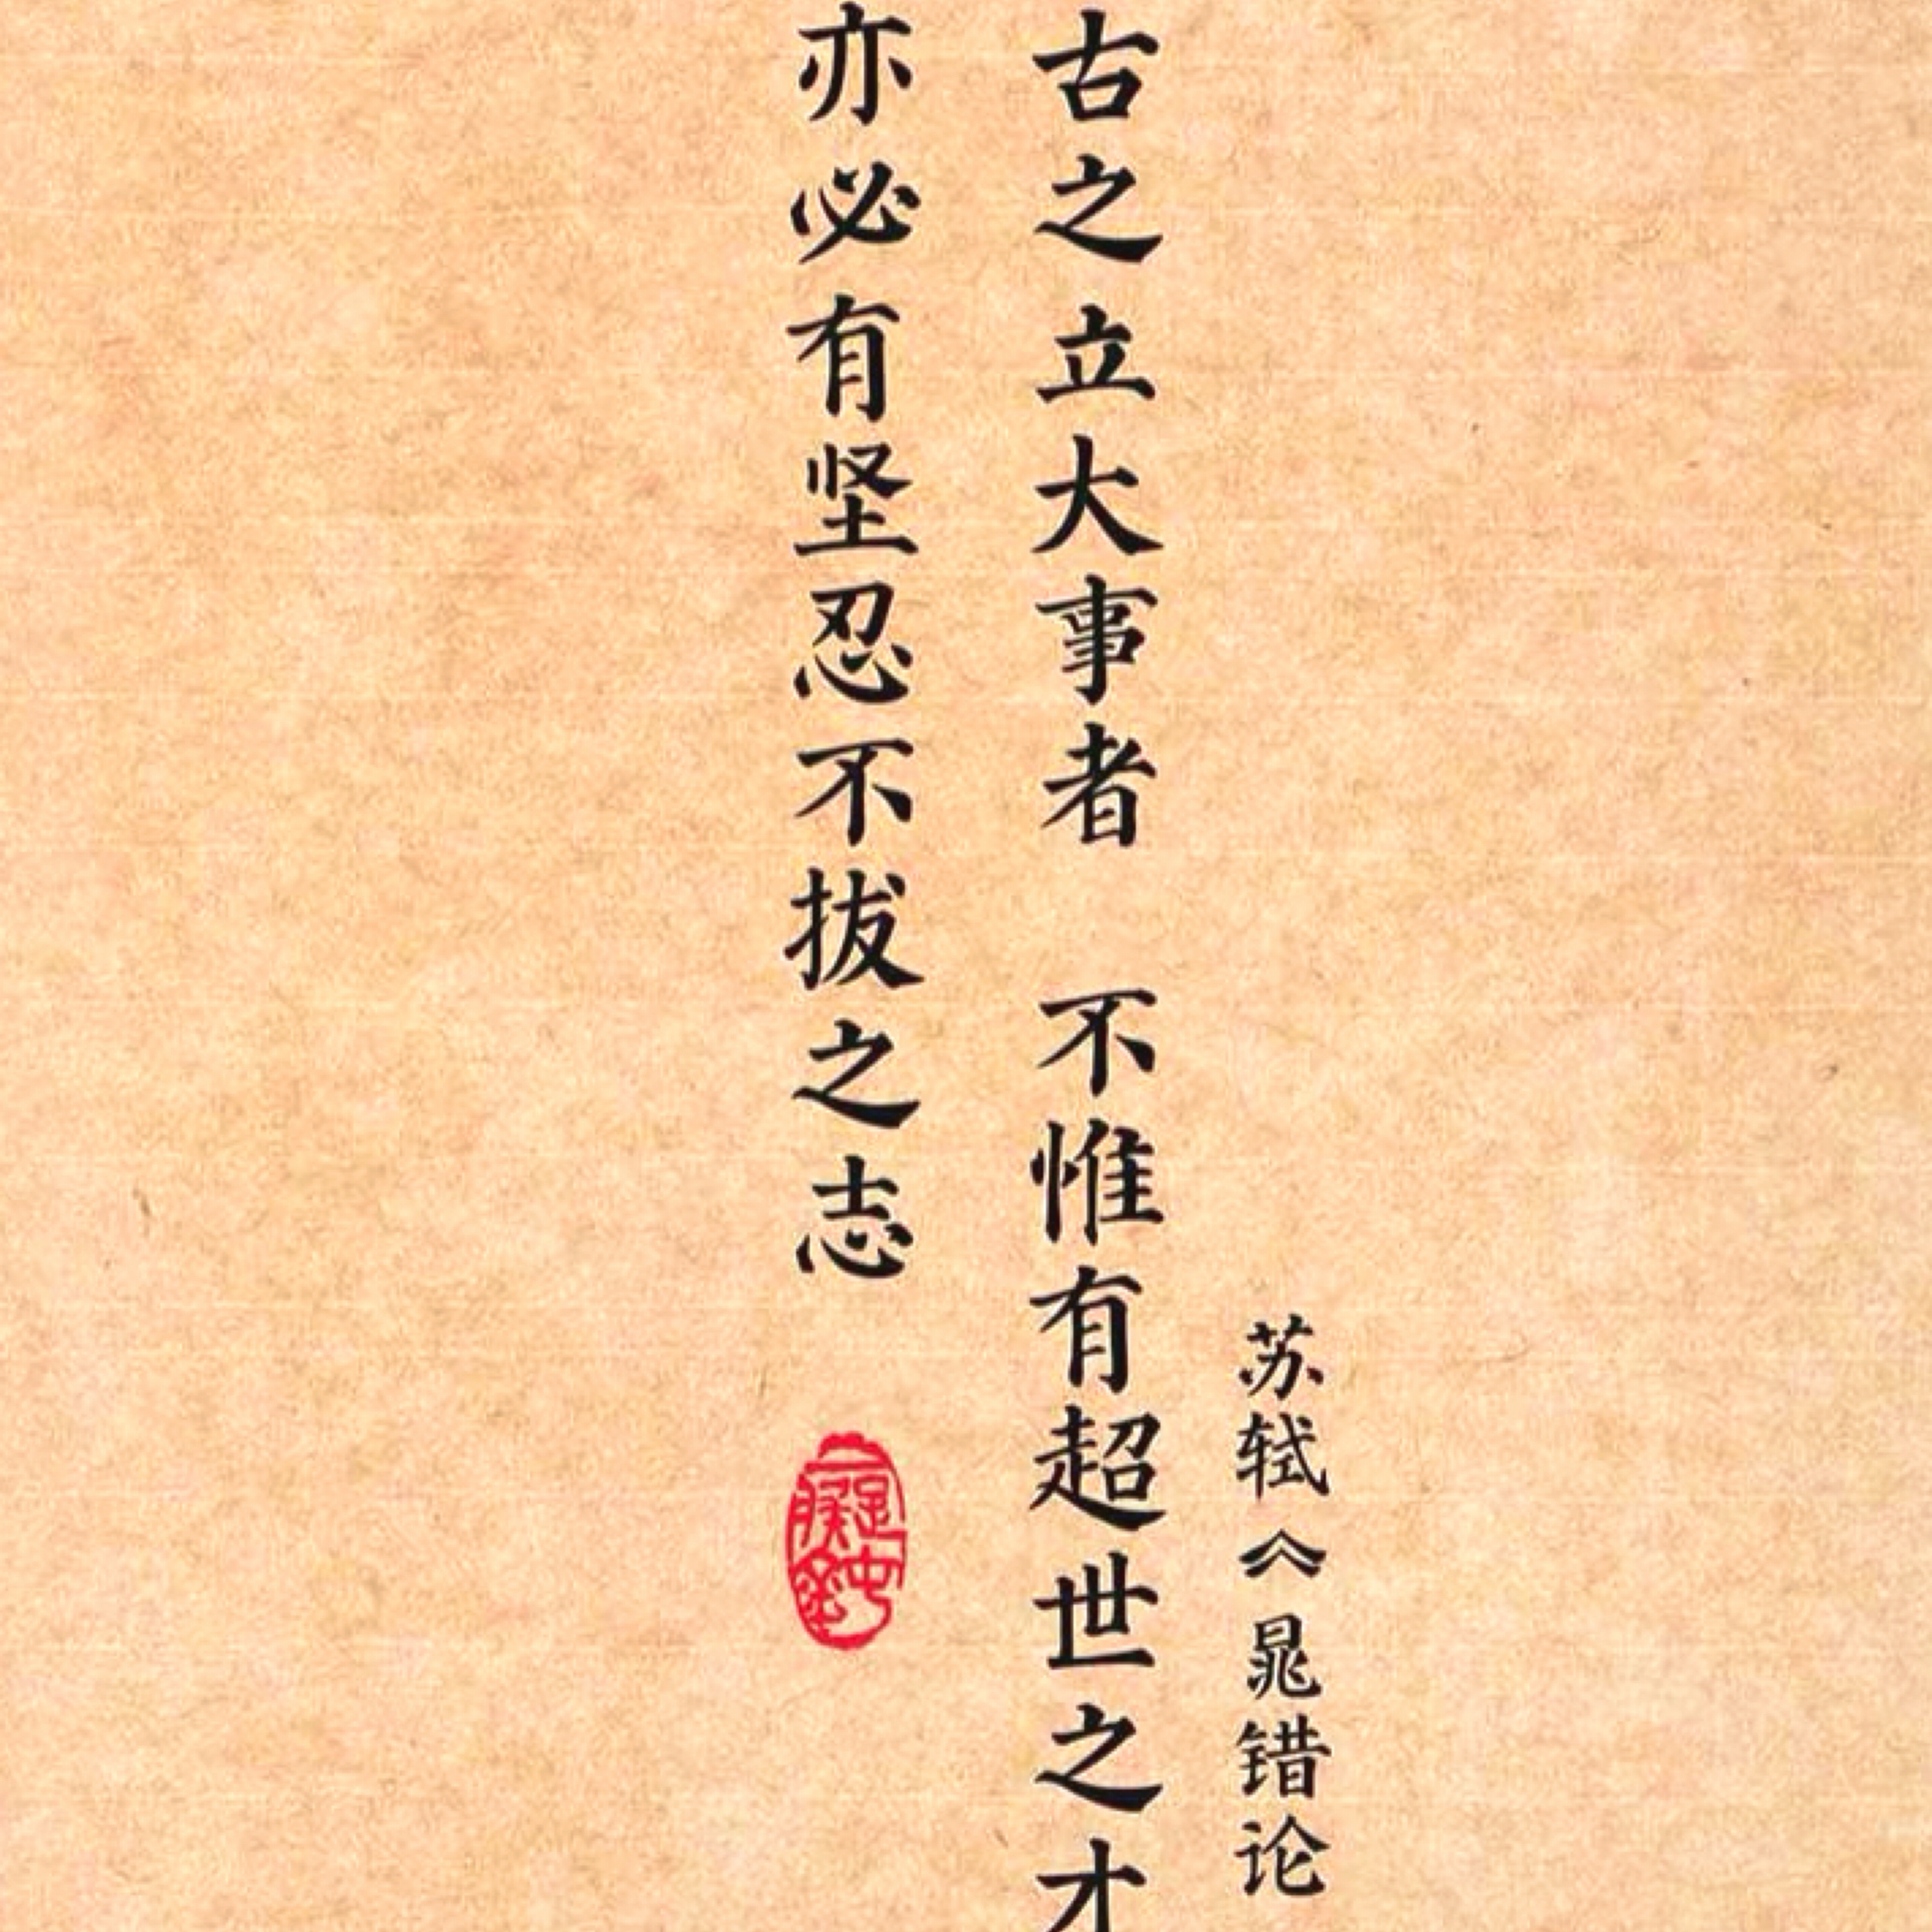 苏轼《晁错论
古之立大事者 不惟有超世之才
亦必有坚忍不拔之志